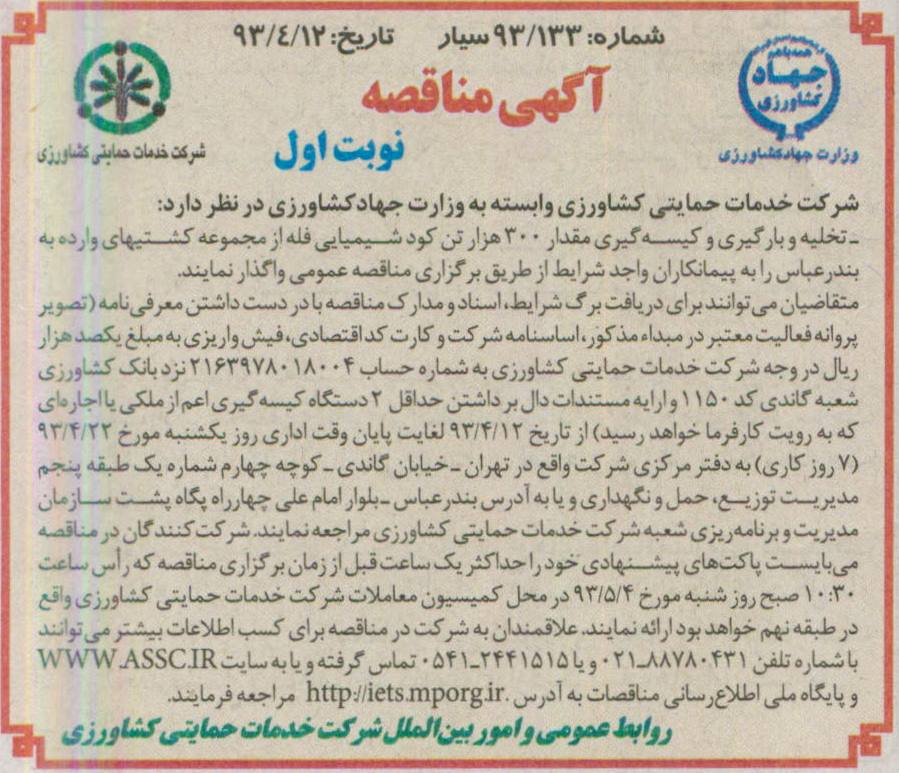 شماره: ۹۳/۱۳۳ سیار تاریخ: ۹۳/٤/۱۲
همه با هم
جهاد
کشاورزی
وزارت جهاد کشاورزی
آگهی مناقصه
نوبت اول
شرکت خدمات حمایتی کشاورزی
شرکت خدمات حمایتی کشاورزی وابسته به وزارت جهاد کشاورزی در نظر دارد:
ـ تخلیه و بارگیری و کیسه‌گیری مقدار ۳۰۰ هزار تن کود شیمیایی فله از مجموعه کشتیهای وارده به
بندرعباس را به پیمانکاران واجد شرایط از طریق برگزاری مناقصه عمومی واگذار نمایند.
متقاضیان می‌توانند برای دریافت برگ شرایط، اسناد و مدارک مناقصه با در دست داشتن معرفی‌نامه (تصویر
پروانه فعالیت معتبر در مبداء مذکور، اساسنامه شرکت و کارت کد اقتصادی، فیش واریزی به مبلغ یکصد هزار
ریال در وجه شرکت خدمات حمایتی کشاورزی به شماره حساب ۲۱۶۳۹۷۸۰۱۸۰۰۴ نزد بانک کشاورزی
شعبه گاندی کد ۱۱۵۰ و ارایه مستندات دال بر داشتن حداقل ۲ دستگاه کیسه‌گیری اعم از ملکی یا اجاره‌ای
که به رویت کارفرما خواهد رسید) از تاریخ ۹۳/۴/۱۲ لغایت پایان وقت اداری روز یکشنبه مورخ ۹۳/۴/۲۲
(۷ روز کاری) به دفتر مرکزی شرکت واقع در تهران ـ خیابان گاندی ـ کوچه چهارم شماره یک طبقه پنجم
مدیریت توزیع، حمل و نگهداری و یا به آدرس بندرعباس ـ بلوار امام علی چهارراه پگاه پشت سازمان
مدیریت و برنامه‌ریزی شعبه شرکت خدمات حمایتی کشاورزی مراجعه نمایند. شرکت‌کنندگان در مناقصه
می‌بایست پاکت‌های پیشنهادی خود را حداکثر یک ساعت قبل از زمان برگزاری مناقصه که رأس ساعت
۱۰:۳۰ صبح روز شنبه مورخ ۹۳/۵/۴ در محل کمیسیون معاملات شرکت خدمات حمایتی کشاورزی واقع
در طبقه نهم خواهد بود ارائه نمایند. علاقمندان به شرکت در مناقصه برای کسب اطلاعات بیشتر می‌توانند
با شماره تلفن ۸۸۷۸۰۴۳۱-۰۲۱ و یا ۲۴۴۱۵۱۵-۰۵۴۱ تماس گرفته و یا به سایت WWW.ASSC.IR
و پایگاه ملی اطلاع‌رسانی مناقصات به آدرس http://iets.mporg.ir. مراجعه فرمایند.
روابط عمومی و امور بین‌الملل شرکت خدمات حمایتی کشاورزی